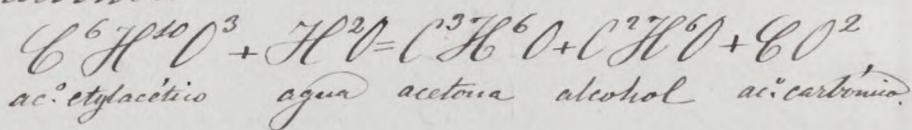 C⁶H¹⁰O³ + H²O = C³H⁶O + C²H⁶O + CO²
ac.º etylacético agua acetona alcohol ac.º carbónico.